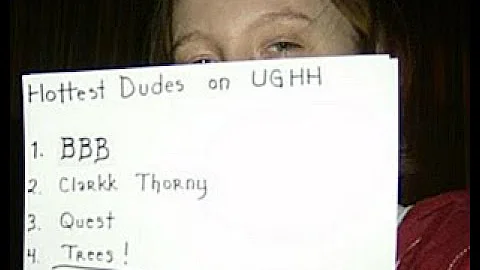 Hottest Dudes on UGHH
1. BBB
2. Clarkk Thorny
3. Quest
4. Trees!